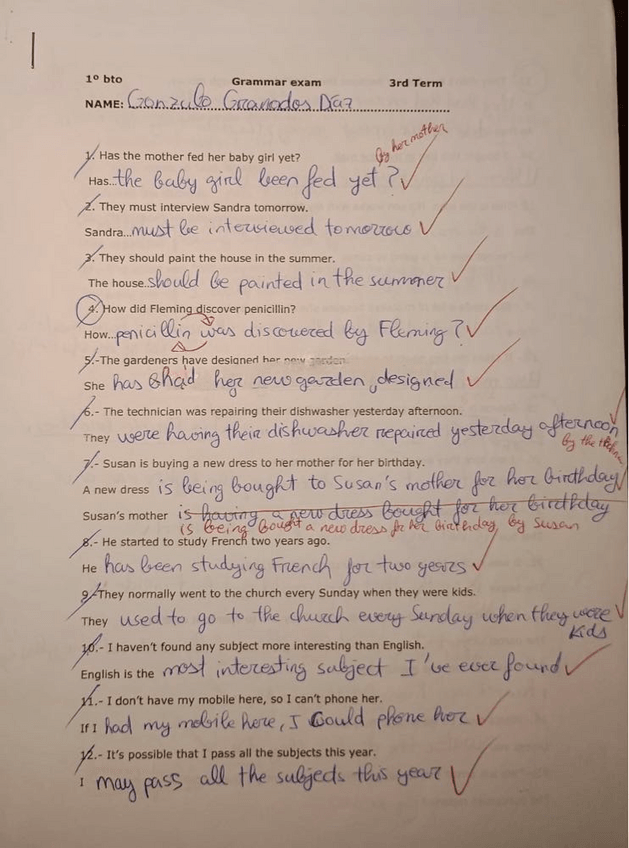 1º bto Grammar exam 3rd Term
NAME: Gonzalo Granados Díaz
by her mother
1. Has the mother fed her baby girl yet?
Has..the baby girl been fed yet?
2. They must interview Sandra tomorrow.
Sandra...must be interviewed tomorrow
3. They should paint the house in the summer.
The house.should be painted in the summer
4. How did Fleming discover penicillin?
How...penicillin was discovered by Fleming?
5.-The gardeners have designed her new garden.
She has had her new garden designed
6.- The technician was repairing their dishwasher yesterday afternoon.
They were having their dishwasher repaired yesterday afternoon
by the
7.- Susan is buying a new dress to her mother for her birthday.
A new dress is being bought to Susan's mother for her birthday
Susan's mother is having a new dress bought for her birthday
is being bought a new dress for her birthday, by Susan
8.- He started to study French two years ago.
He has been studying French for two years
9.-They normally went to the church every Sunday when they were kids.
They used to go to the church every Sunday when they were
kids
10.- I haven't found any subject more interesting than English.
English is the most interesting subject I've ever found
11.- I don't have my mobile here, so I can't phone her.
If I had my mobile here, I could phone her
12.- It's possible that I pass all the subjects this year.
I may pass all the subjects this year